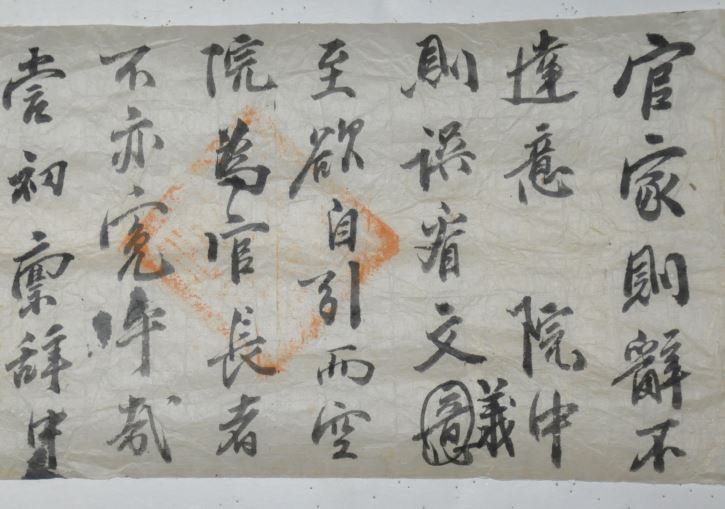 官家則辭不
達意 院中
則誤看文意義
至欲自引而空
院為官長者
不亦寃乎哉
當初稟辭中